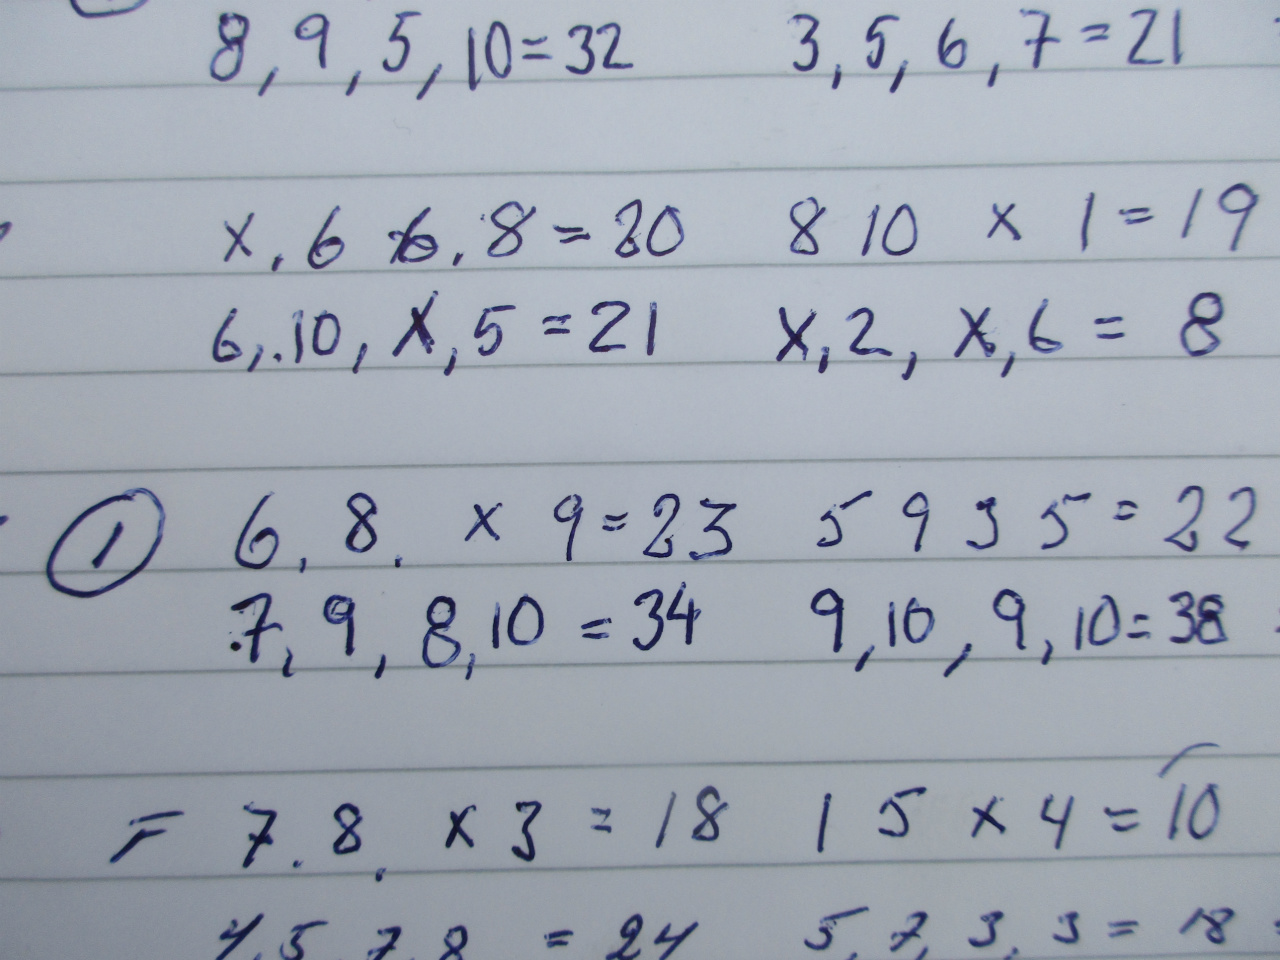 8, 9, 5, 10=32 3, 5, 6, 7=21
x, 6 6, 8 = 20 8 10 x 1 = 19
6, 10, x, 5 = 21 x, 2, x, 6 = 8
1 6, 8. x 9 = 23 5 9 3 5 = 22
7, 9, 8, 10 = 34 9, 10, 9, 10 = 38
F 7. 8. x 3 = 18 1 5 x 4 = 10
4, 5, 7, 8 = 24 5, 7, 3, 3 = 18